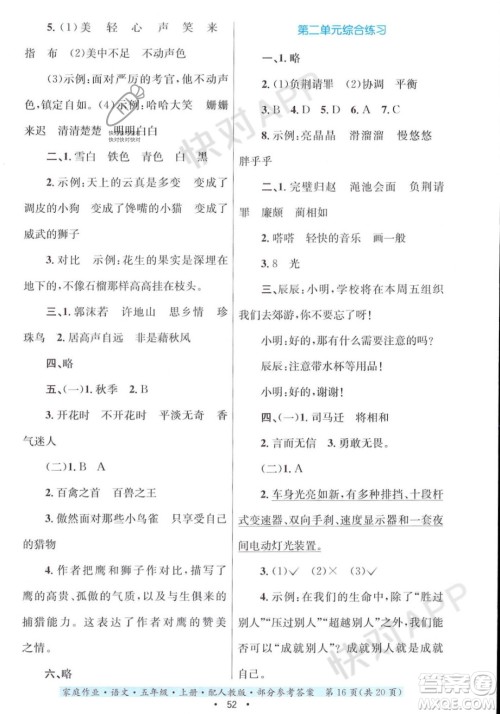 5. 美　轻　心　声　笑　来
指　布　(2)美中不足　不动声色
(3)示例：面对严厉的考官，他故作
镇定自如。(4)示例：哈哈大笑　姗姗
来迟　清清楚楚　明明白白
二、1. 雪白　铁色　青色　黑色
2. 示例：天上的云真是奇异，变成了
调皮的小狗　变成了馋嘴的小猫　变成了
威武的狮子
3. 对比　示例：花生的果实是深埋在
地下的，不像石榴那样高挂在枝头。
三、1. 郭沫若　许地山　思乡情　珍
珠鸟　2. 居高声自远　非是藉秋风
四、略
五、(一)1. 秋季　2. B
3. 开花时　不开花时　平淡无奇　香
气迷人
(二)1. A
2. 百禽之首　百兽之首
3. 傲然面对一些小鸟雀　只享受自己
的猎物
4. 作者把鹰和狮子作对比，描写出了
鹰的高贵、孤傲的气质，以及与生俱来的
捕猎能力，表达了作者对鹰的赞美之情。
六、略
第二单元综合练习
一、1. 略
2. (1)负荆请罪　(2)协调　平衡
3. B　4. D　5. D　6. A　7. C
8. 示例：亮晶晶　滑溜溜　慢悠悠
胖乎乎
二、1. 完璧归赵　渑池会面　负荆请
罪　廉颇　蔺相如
2. 嗒嗒　轻快的音乐　画一般
3. 8　光
三、辰辰：小明，学校将在本周五组织
我们去郊游，你有几点注意事项不要忘了！
小明：好的，那有什么需要注意的吗？
辰辰：注意带水杯等用品！
小明：好的，谢谢！
四、(一)1. 司马迁　将相和
2. 言而无信　3. 勇敢无畏。
(二)1. B
2. 车身光亮如新，有多种排挡、十段杆
式变速器、双向手刹、速度里程表和一套夜
间电动灯光装置。
3. (1)✓　(2)×　(3)✓
4. 示例：在我们的生命中，除了“胜过
别人”“压过别人”“超越别人”之外，还有
“成就别人”，成就别人就是成就自己。
家庭作业·语文·五年级·上册·配人教版·部分参考答案　第16页(共20页)
52
快对APP